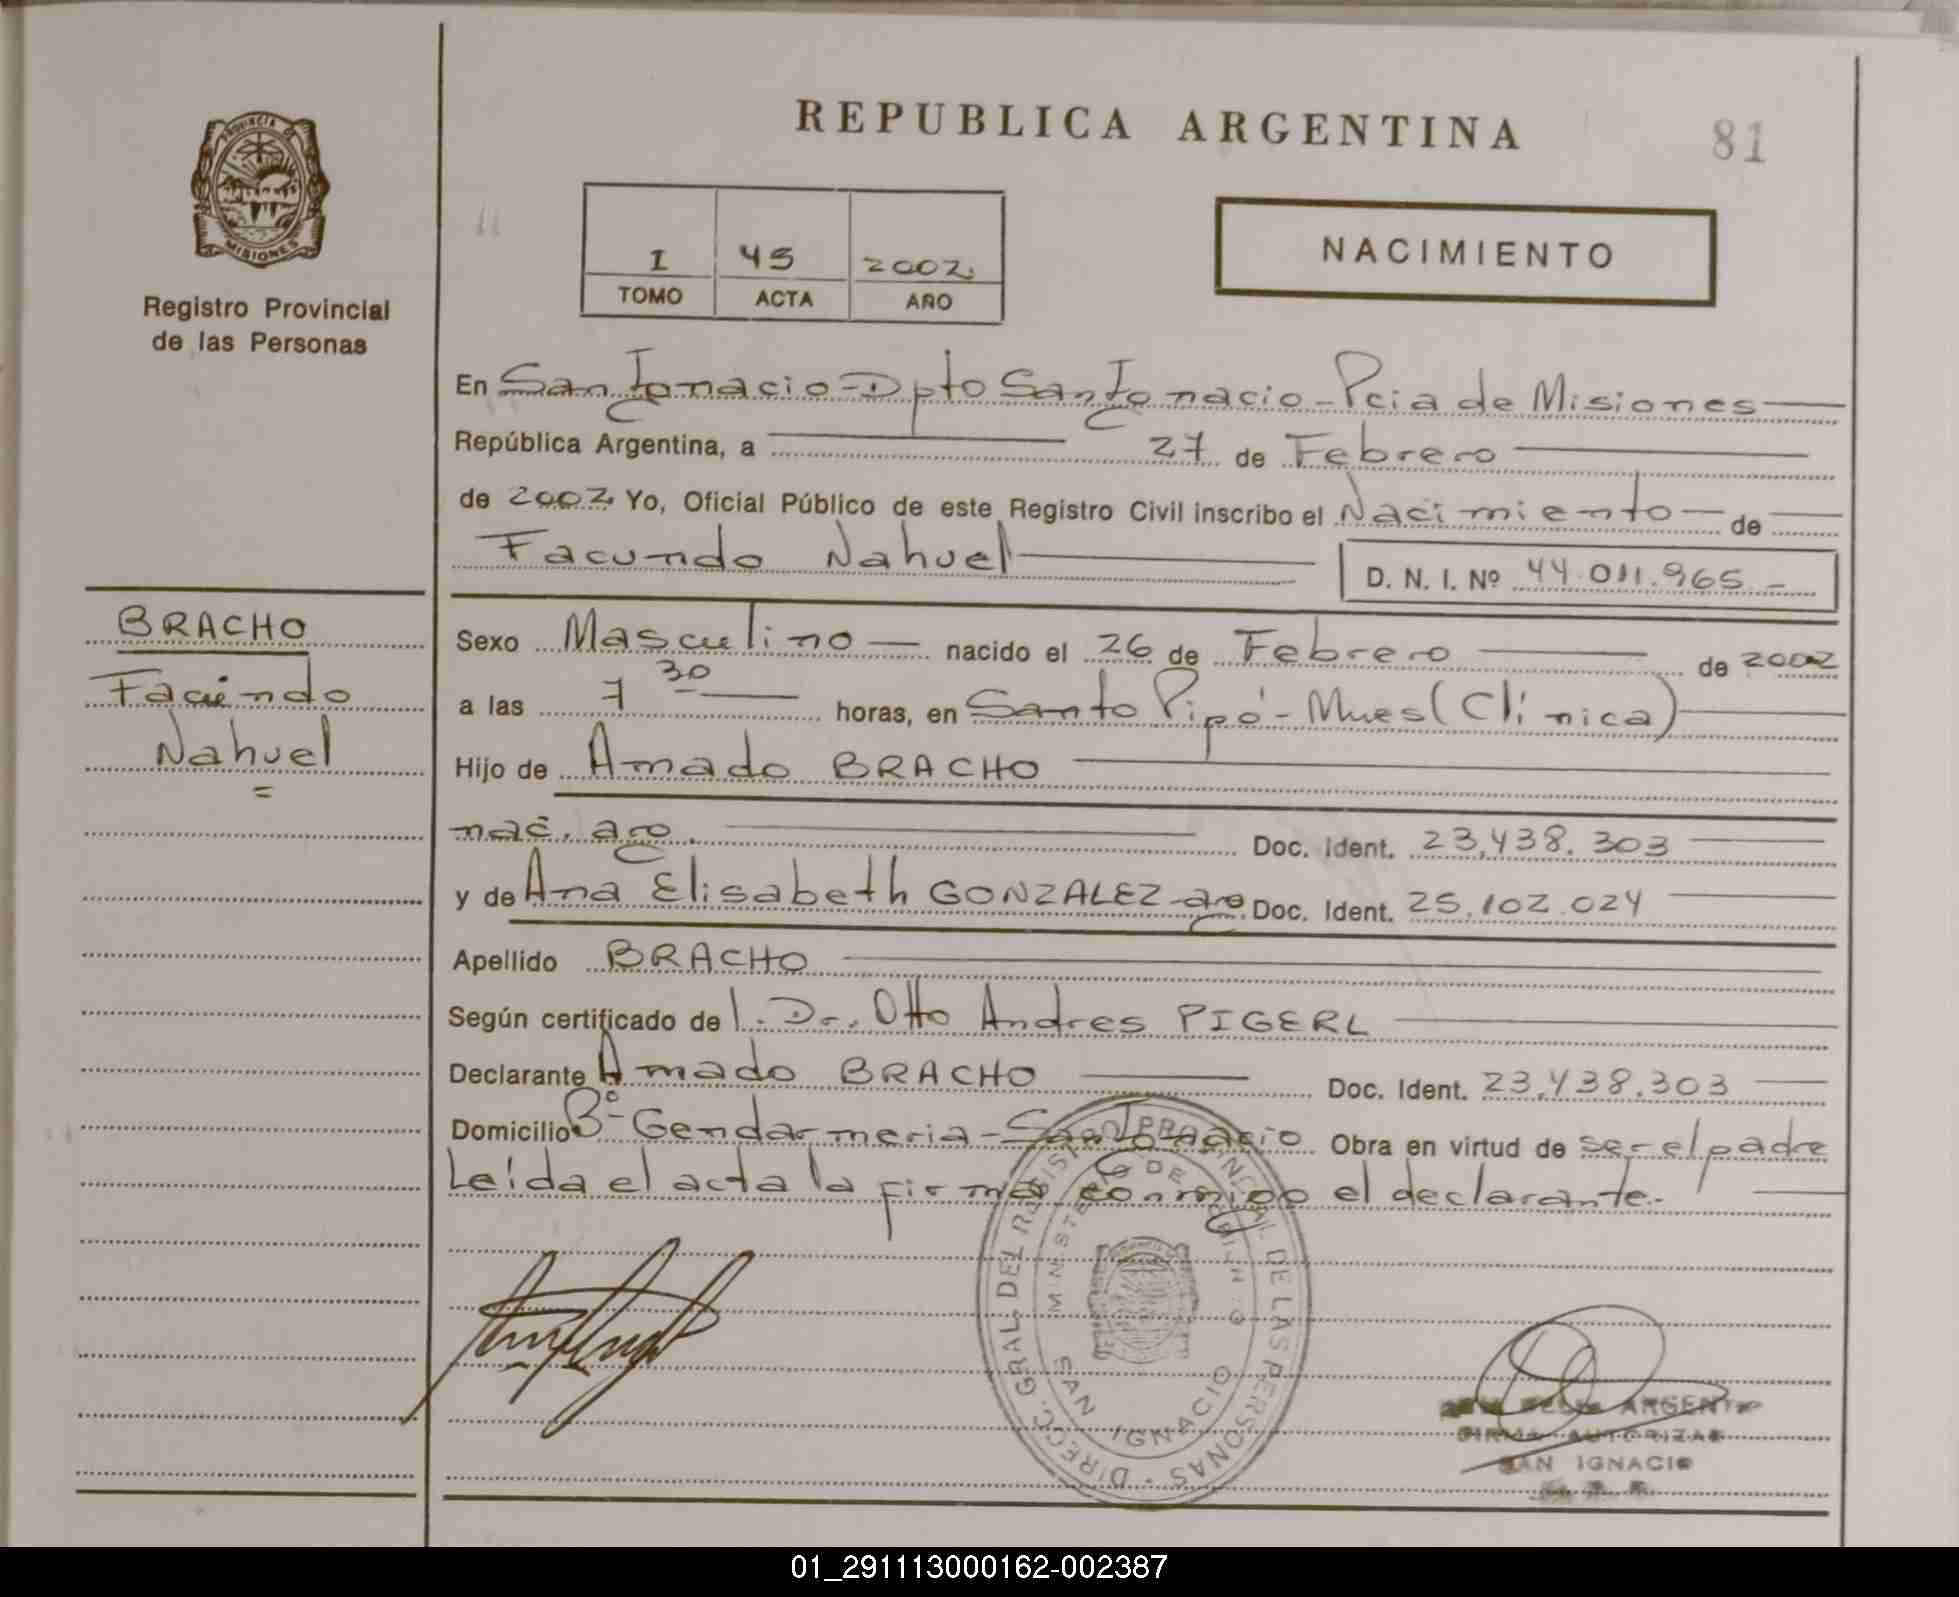 REPUBLICA ARGENTINA
81
PROVINCIA DE MISIONES
Registro Provincial
de las Personas
I 45 2002
TOMO ACTA AÑO
NACIMIENTO
En San Ignacio - Dpto San Ignacio - Pcia de Misiones
República Argentina, a 27 de Febrero
de 2002 Yo, Oficial Público de este Registro Civil inscribo el Nacimiento de
Facundo Nahuel
D. N. I. Nº 44.011.965.-
BRACHO
Facundo
Nahuel
Sexo Masculino nacido el 26 de Febrero de 2002
a las 7 30 horas, en Santo Pipó - Mnes (Clínica)
Hijo de Amado BRACHO
nac. arg. Doc. Ident. 23.438.303
y de Ana Elisabeth GONZALEZ - arg. Doc. Ident. 25.102.024
Apellido BRACHO
Según certificado de l. Dr. Otto Andres PIGERL
Declarante Amado BRACHO Doc. Ident. 23.438.303
Domicilio Bº Gendarmeria - San Ignacio Obra en virtud de ser el padre
Leída el acta la firma conmigo el declarante.
DIREC. GRAL. DEL REGISTRO PROVINCIAL DE LAS PERSONAS
MINISTERIO DE GOBIERNO
SAN IGNACIO
ARGENTI
FIRMA AUTORIZAD
SAN IGNACIO
01_291113000162-002387